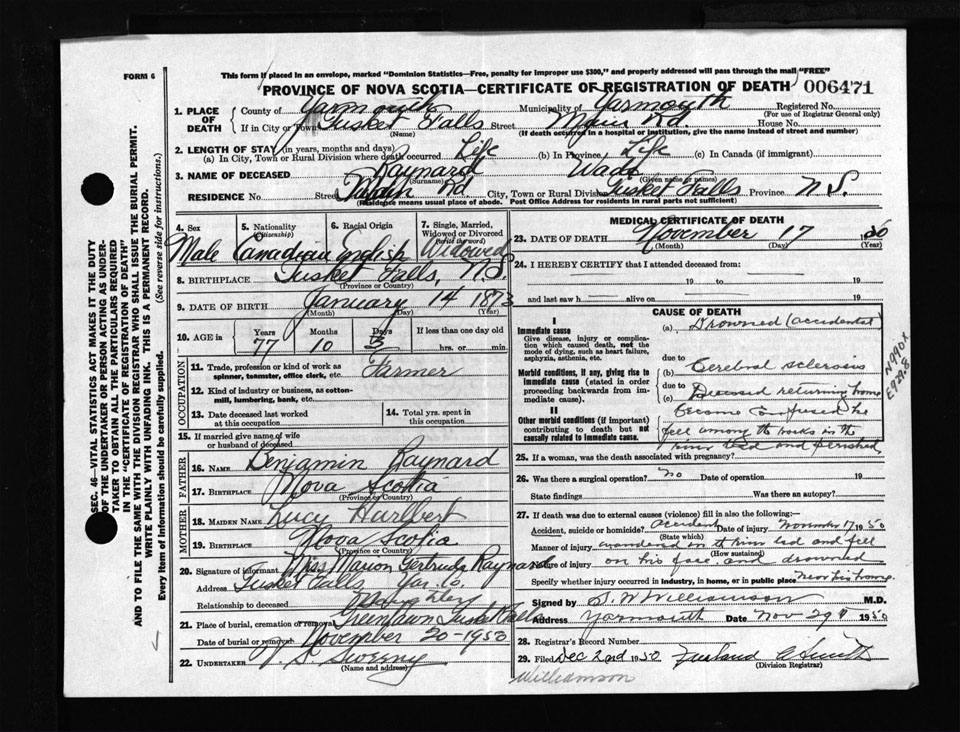 FORM 6
This form if placed in an envelope, marked "Dominion Statistics—Free, penalty for improper use $300," and properly addressed will pass through the mail "FREE"
PROVINCE OF NOVA SCOTIA—CERTIFICATE OF REGISTRATION OF DEATH 006471
1. PLACE OF DEATH County of Yarmouth Municipality of Yarmouth Registered No.
(For use of Registrar General only)
If in City or Town Tusket Falls Street Main Rd. House No.
(Name) (If death occurred in a hospital or institution, give the name instead of street and number)
2. LENGTH OF STAY (in years, months and days)
(a) In City, Town or Rural Division where death occurred Life (b) In Province, Life (c) In Canada (if immigrant)
3. NAME OF DECEASED Raynard Wade
(Surname) (Given name or names)
RESIDENCE No. Street Rd City, Town or Rural Division Tusket Falls Province N.S.
(Residence means usual place of abode. Post Office Address for residents in rural parts not sufficient)
4. Sex 5. Nationality (Citizenship) 6. Racial Origin 7. Single, Married, Widowed or Divorced (Write the word)
Male Canadian English Widowed
8. BIRTHPLACE Tusket Falls, N.S.
(Province or Country)
9. DATE OF BIRTH January 14 1873
(Month) (Day) (Year)
10. AGE in Years Months Days If less than one day old
77 10 3 hrs. or min.
OCCUPATION
11. Trade, profession or kind of work as spinner, teamster, office clerk, etc. Farmer
12. Kind of industry or business, as cotton-mill, lumbering, bank, etc.
13. Date deceased last worked at this occupation 14. Total yrs. spent in this occupation
15. If married give name of wife or husband of deceased
FATHER
16. NAME Benjamin Raynard
17. BIRTHPLACE Nova Scotia
(Province or Country)
MOTHER
18. MAIDEN NAME Lucy Hurlbert
19. BIRTHPLACE Nova Scotia
(Province or Country)
20. Signature of informant Miss Marion Gertrude Raynard
Address Tusket Falls Yar. Co.
Relationship to deceased Daughter
21. Place of burial, cremation or removal Tusket Falls
Date of burial or removal November 20 - 1950
22. UNDERTAKER S. Sweeny
(Name and address)
MEDICAL CERTIFICATE OF DEATH
23. DATE OF DEATH November 17 1950
(Month) (Day) (Year)
24. I HEREBY CERTIFY that I attended deceased from:
19 to 19
and last saw h alive on 19
CAUSE OF DEATH
I
Immediate cause
Give disease, injury or complication which caused death, not the mode of dying, such as heart failure, asphyxia, asthenia, etc.
(a) Drowned (accidental
due to
Morbid conditions, if any, giving rise to immediate cause (stated in order proceeding backwards from immediate cause).
(b) Cerebral sclerosis
due to
(c) Deceased returning home
became confused he
fell among the rocks in the
river bed and perished
II
Other morbid conditions (if important) contributing to death but not causally related to immediate cause.
N990X
E929.8
25. If a woman, was the death associated with pregnancy?
26. Was there a surgical operation? no Date of operation 19
State findings Was there an autopsy?
27. If death was due to external causes (violence) fill in also the following:
Accident, suicide or homicide? accident Date of injury November 17 1950
(State which)
Manner of injury wandered in river bed and fell
(How sustained)
Nature of injury on his face and drowned
Specify whether injury occurred in industry, in home, or in public place Near his home
Signed by S. W. Williamson M.D.
Address Yarmouth Date Nov 29 1950
28. Registrar's Record Number
29. Filed Dec 2nd 1950 Smith
(Division Registrar)
Williamson
SEC. 46—VITAL STATISTICS ACT MAKES IT THE DUTY
OF THE UNDERTAKER OR PERSON ACTING AS UNDERTAKER
TO OBTAIN ALL THE PARTICULARS REQUIRED
IN THE "CERTIFICATE OF REGISTRATION OF DEATH"
AND TO FILE THE SAME WITH THE DIVISION REGISTRAR WHO SHALL ISSUE THE BURIAL PERMIT.
WRITE PLAINLY WITH UNFADING INK. THIS IS A PERMANENT RECORD.
Every item of Information should be carefully supplied. (See reverse side for instructions.)